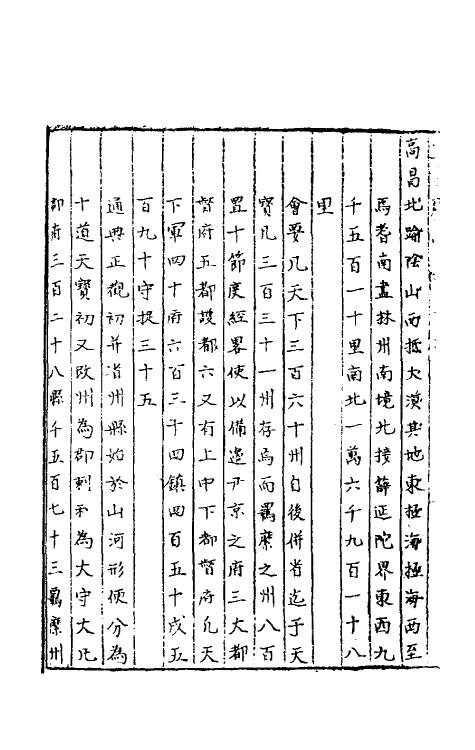 高昌北踰陰山而抵大漠其地東極海極海西至
焉耆南盡林州南境北接薛延陀界東西九
千五百一十里南北一萬六千九百一十八
里
會要凡天下三百六十州自後併省迄于天
寶凡三百三十一州存焉而羈縻之州八百
置十節度經畧使以備邊尹京之府三大都
督府五都護都六又有上中下都督府凡天
下軍四十府六百三十四鎮四百五十戍五
百九十守捉三十五
通典正觀初并省州縣始於山河形便分為
十道天寶初又改州為郡刺史為大守大凡
郡府三百二十八縣千五百七十三羈縻州